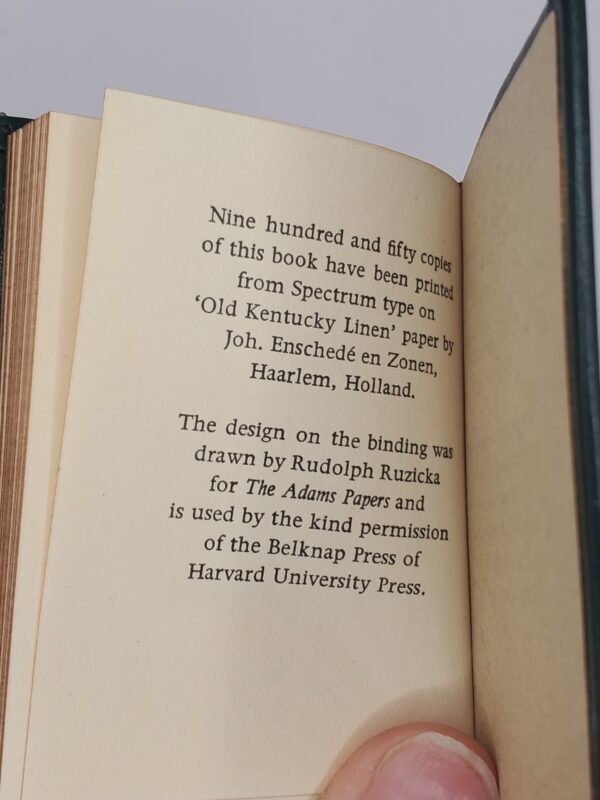 Nine hundred and fifty copies
of this book have been printed
from Spectrum type on
‘Old Kentucky Linen’ paper by
Joh. Enschedé en Zonen,
Haarlem, Holland.
The design on the binding was
drawn by Rudolph Ruzicka
for The Adams Papers and
is used by the kind permission
of the Belknap Press of
Harvard University Press.